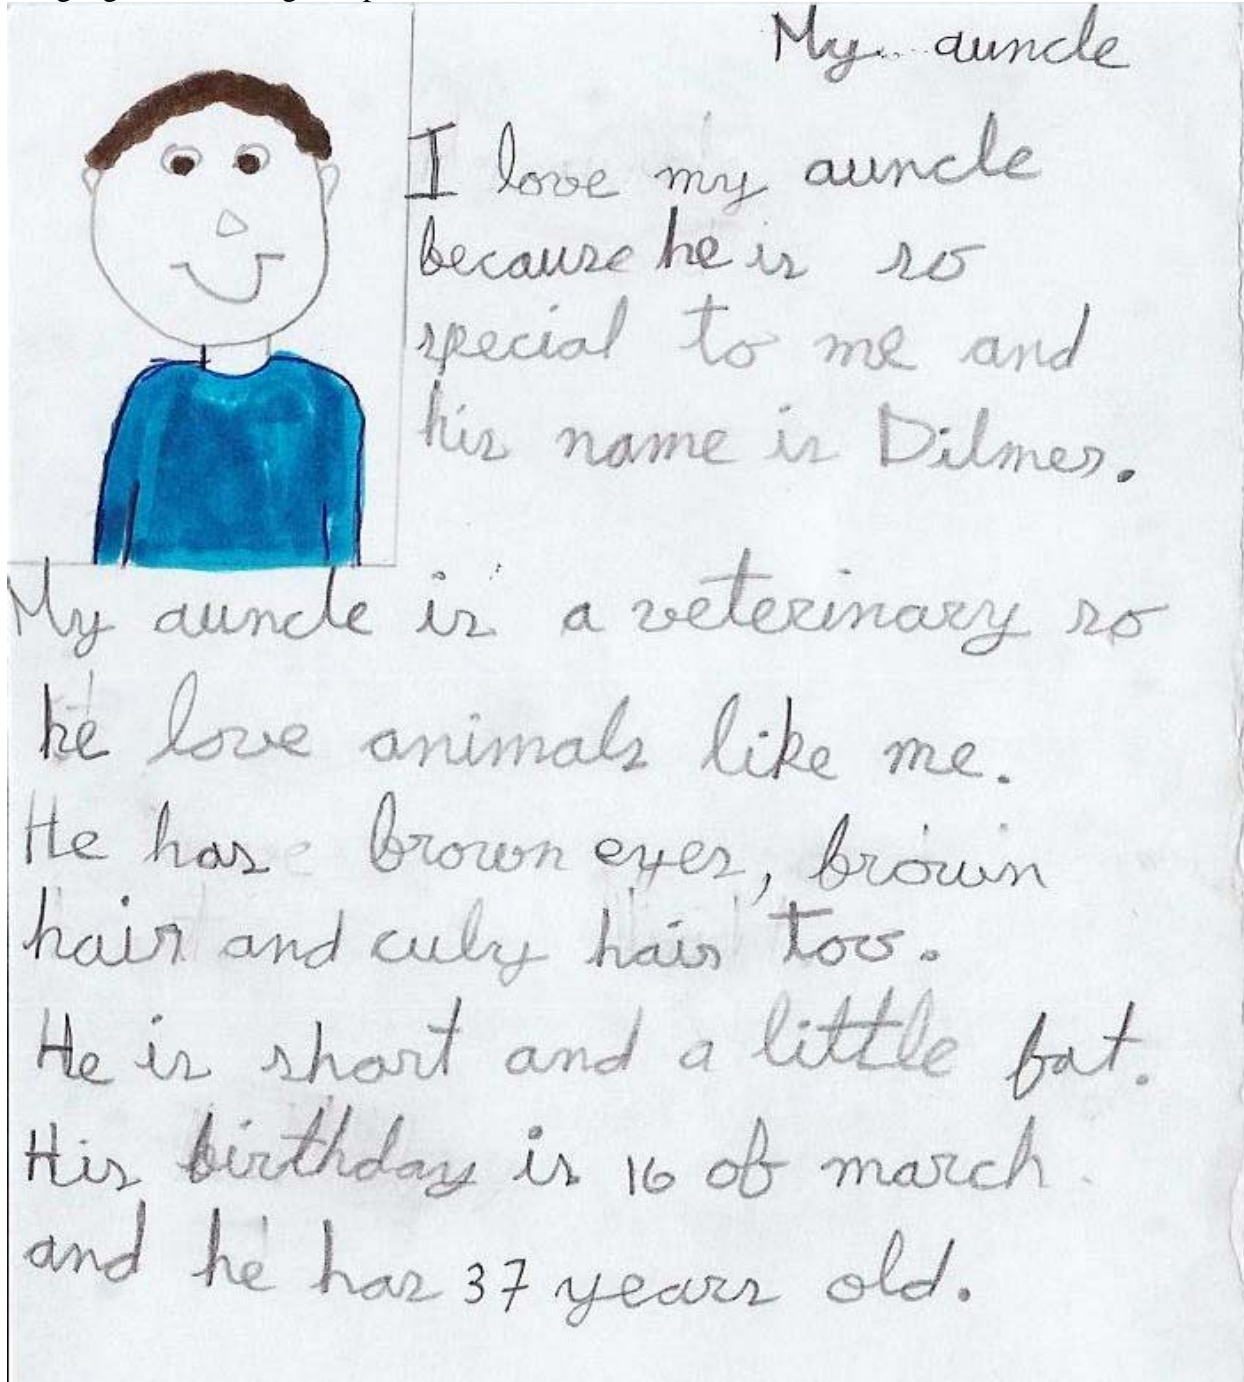 My auncle
I love my auncle
because he is so
special to me and
his name is Dilmer.
My auncle is a veterinary so
he love animals like me.
He has brown eyes, brown
hair and culy hair too.
He is short and a little fat.
His birthday is 16 of march
and he has 37 years old.